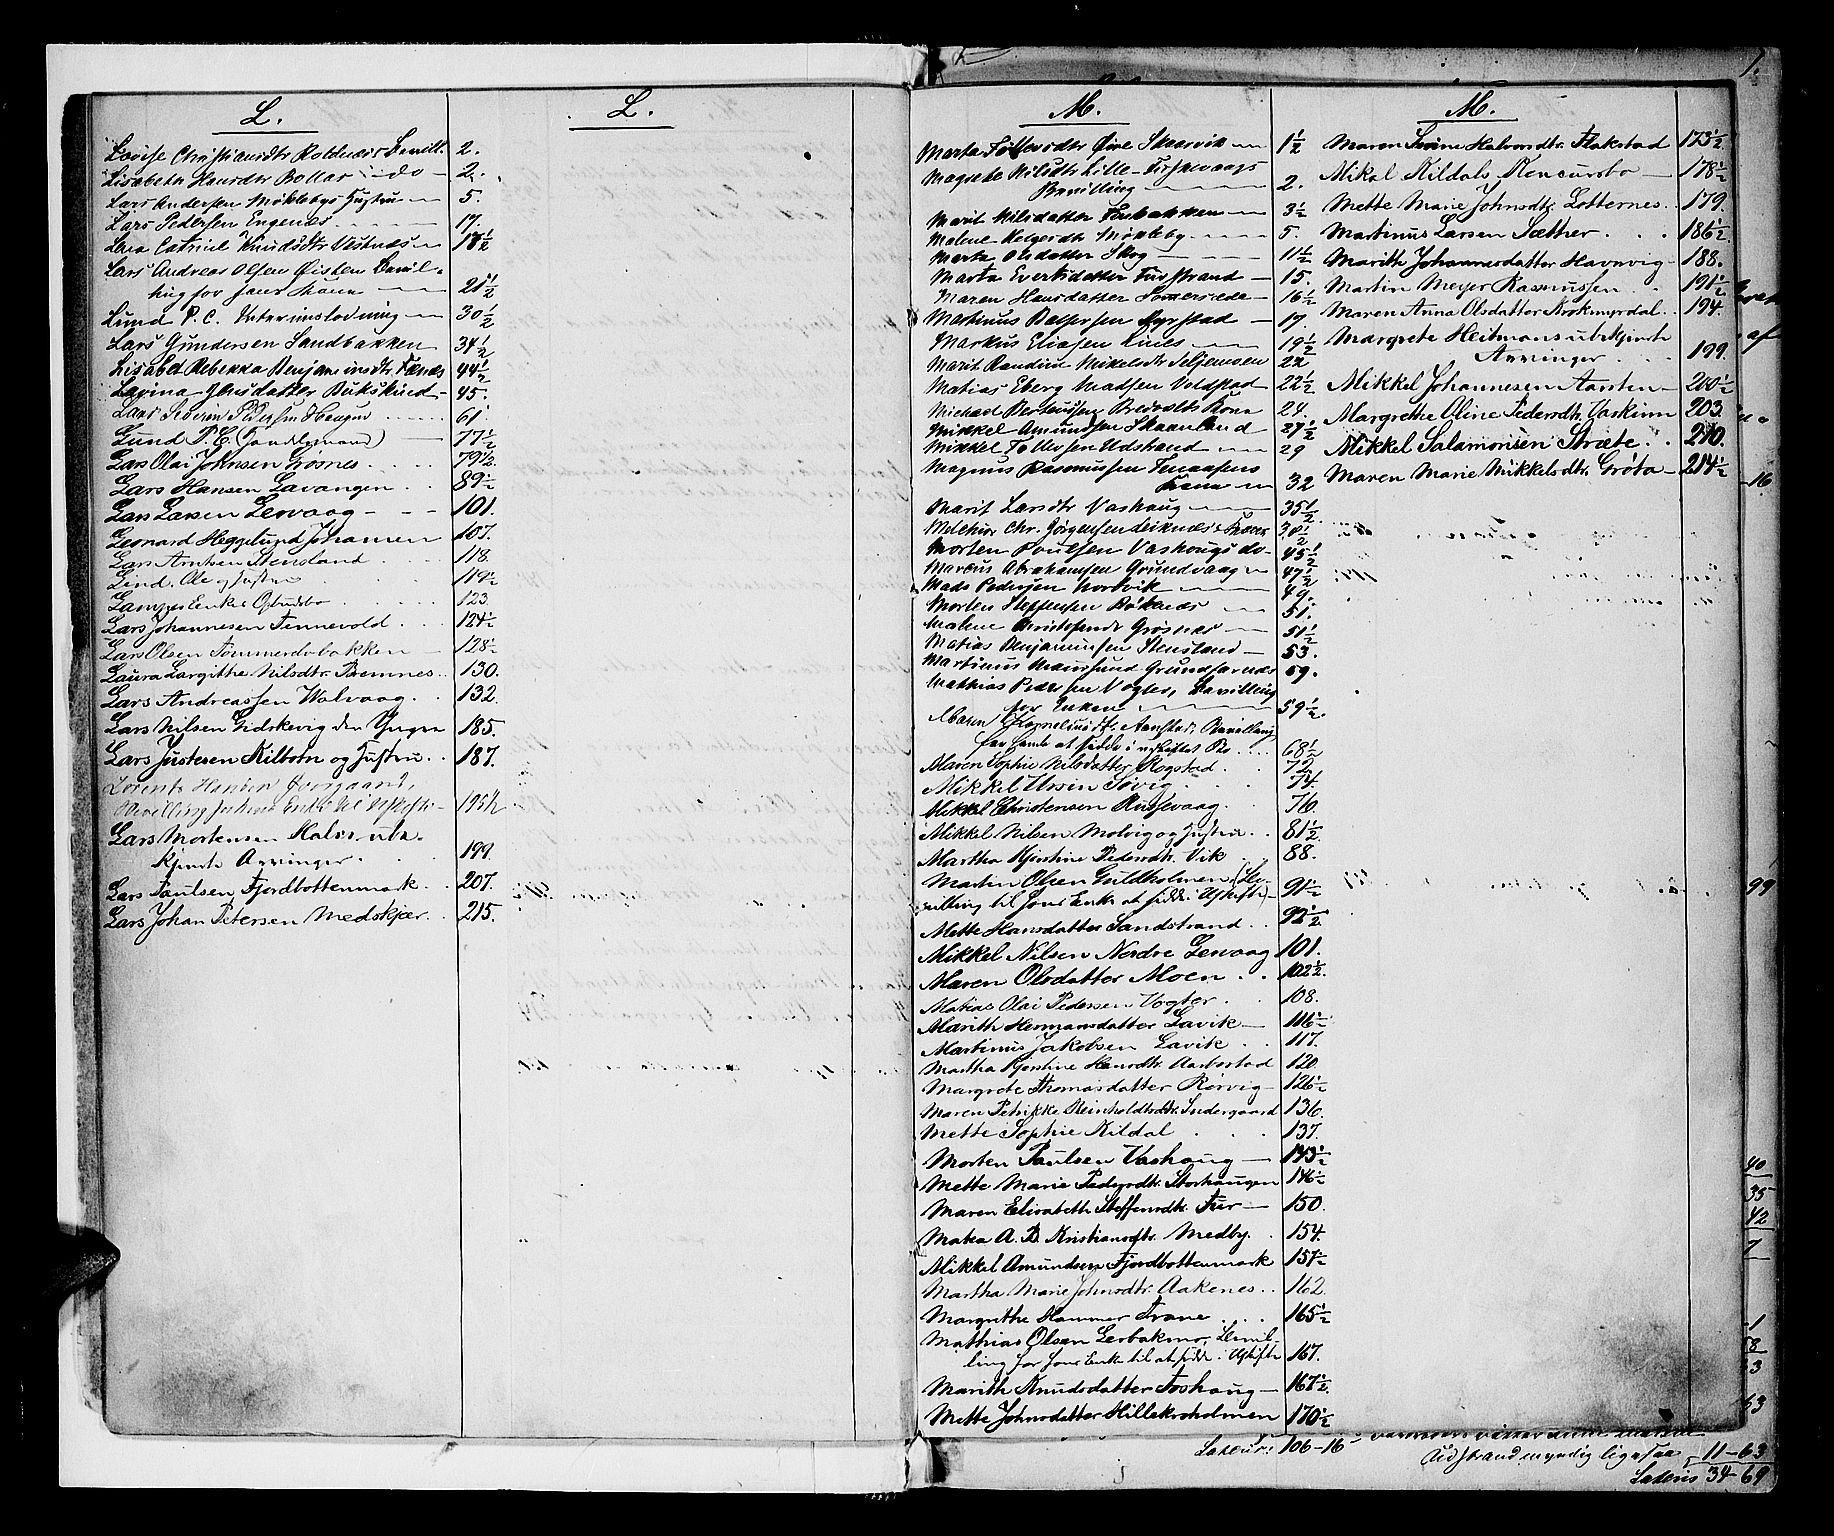 L.
Lovise Christiansdtr Roldnæs's Bevill. 2.
Lisabeth Hansdtr Bollas do 2.
Lars Andersen Møklebys Hustru 5.
Lars Pedersen Engenes 17.
Lea Catrine Knudsdtr Vestnæs 18½
Lars Andreas Olsen Øisten Bevil-
ling for hans 21½
Lund P. C. 30½
Lars Gundersen Sandbakken 34½
Lisabel Rebekka Benjaminsdtr 44½
Lavina Jensdatter Bukskind 45.
Lars Severin Pedersen Haugen 61.
Lund P. C. (Handelsmand) 77½
Lars Olai Johnsen Grøsnes 79½
Lars Hansen Lavangen 89½
Lars Larsen Lervaag 101.
Leonard Heggelund Johansen 107.
Lars Arntsen Stensland 118.
Lind, Ole og Hustru 119½
Enke, 123.
Lars Johannesen Tennevold 124½
Lars Olsen Tømmerdobakken 128½
Laura Largithe Nilsdtr. Bremnes 130.
Lars Andreassen Wolvaag 132.
Lars Nilsen Gidskevig den Yngre 185.
Lars Justesen Kilbotn og Hustru 187.
Lorents Hansen Øvergaard,
Bevilling for hans Enke til Uskifte 195½
Lars Mortensen Hals's ube-
kjendte Arvinger 199.
Lars Paulsen Fjordbottenmark 207.
Lars Johan Petersen Medskjær 215.
L.
M.
Marta Tollevsdtr Øvre Skaarvik 1½
Magrete Nilsdtr Lille-Fiskevaags
Bevilling 2.
Marit Nilsdatter Furbakken 3½
Malene Helgerdtr Møkleby 5.
Merta Olsdatter Skog 11½
Marta Evertsdatter Furstrand 15.
Maren Hansdatter Sommersæde 16½
Martinus Balsersen Myrstad 17.
Markus Eliasen Lines 19½
Marit Randine Mikelsdtr Seljemoen 22
Matias Eberg Madsen Veldstad 22½
Michael Berteussen Breivolds Kona 24.
Mikkel Amundsen Skaanland 27½
Mikkel Tollevsen Udstrand 29
Magnus Rasmussen
32
Marit Larsdtr Vashaug 35½
Melchior Chr. Jørgensen 30½
Morten Poulsen Vashougs do 45½
Marcus Abrahamsen Grundvaag 47½
Mads Pedersen Nordvik 49.
Morten Steffensen Bøknæs 51.
Malene Christofersdtr Grøsnæs 51½
Matias Benjaminsen Stensland 53.
Martinus Maursund Grundfarnæs 59.
Mathias Peder sen Vogter, Bevilling
for Enken 59½
Maren Corneliusdtr. Aanstad, Bevilling
for samme at sidde i uskiftet Bo 68½
Maren Sophie Nilsdatter Rogstad 72
Mikkel Ursin Søvig 74.
Mikkel Christensen Russevaag 76
Mikkel Nilsen Molvig og Hustru 81½
Martha Kjerstine Pedersdtr. Vik 88.
Martin Olsen Guldholmen (Be-
villing til hans Enke at sidde i Uskifte) 91½
Mette Hansdatter Sandstrand 92½
Mikkel Nilsen Nordre Lervaag 101.
Maren Olsdatter Moen 102½
Matias Olai Pedersen Vogter 108.
Marith Hermansdatter Lavik 116½
Martinus Jakobsen Lavik 117.
Martha Kjerstine Hansdtr Aarbostad 120.
Margrete Thomasdatter Rørvig 126½
Maren Petrikke Reinholdtsdtr. Indergaard 136.
Mette Sophie Kildal 137.
Morten Paulsen Vashaug 143½
Mette Marie Pedersdtr. Storhaugen 146½
Maren Elisabeth Steffensdtr. Fur 150.
Maka A. B. Kristiansdtr. Medby 154.
Mikkel Amundsen Fjordbottenmark 157½
Martha Marie Johnsdtr. Aakenes 162.
Margrethe Hammer Trane 165½
Mathias Olsen Lerbakmo, Bevil-
ling for hans Enke til at sidde i Uskifte 167.
Marith Knudsdatter Foshaug 167½
Mette Johnsdatter Hilleksholmen 170½
M.
Maren Halvorsdtr. Flakstad 173½
Mikal Kildals Konkursbo 178½
Mette Marie Johnsdtr. Lotternes 179.
Martinus Larsen Sætther 186½
Marith Johannesdatter Havnvig 188.
Martin Meyer Rasmussen 191½
Maren Anna Olsdatter Krokmyrdal 194.
Margrete Heitmans ubekjendte
Arvinger 199.
Mikkel Johannesen Aarsten 200½
Margrethe Oline Pedersdtr. Vaskinn 203.
Mikkel Salamonsen Stræte 210.
Maren Marie Mikkelsdtr. Grøtø 214½
1.
af
16
99
40
35
42
7
1
58
3
53
Lateris: 106-16
11-63
Lateris 34-69